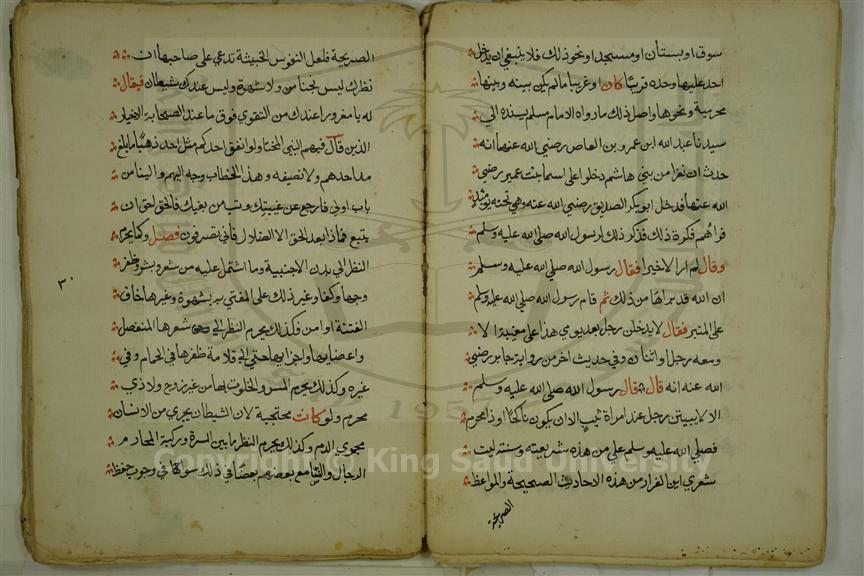 سوق او بستان او مسجد او نحو ذلك فلا ينبغي ان يدخل
احد عليها وحده قريبًا كان او غريبا مالم يكن بينه وبينها
محرمية ونحوها واصل ذلك ما رواه الامام مسلم بسنده الي
سيدنا عبد الله ابن عمرو بن العاص رضي الله عنهما انه
حدث ان نفرا من بني هاشم دخلوا على اسما بنت عميس رضي
الله عنها فدخل ابو بكر الصديق رضي الله عنه وهي تحته يومئذ
فراهم فكره ذلك فذكر ذلك لرسول الله صلي الله عليه وسلم
وقال لم ار الا خيرا فقال رسول الله صلي الله عليه وسلم
ان الله قد براها من ذلك ثم قام رسول الله صلي الله عليه وسلم
على المنبر فقال لا يدخلن رجل بعد يومي هذا على مغيبة الا
ومعه رجل او اثنان وفي حديث اخر من رواية جابر رضي
الله عنه انه قال قال رسول الله صلي الله عليه وسلم
الا لا يبيتن رجل عند امراة ثيب الا ان يكون ناكحًا او ذا محرم
فصلي الله عليه وسلم علي من هذه شريعته وسنته ليت
شعري اين الفرار من هذه الاحاديث الصحيحة والمواعظ
الصريحة
الصريحة فلعل النفوس الخبيثة تدعي على صاحبها ان
نظرك ليس بخنا من ولا شهوة وليس عندك شيطان فيقال
له يا مغرور اعندك من التقوي فوق ما عند الصحابة الاخيار
الذين قال فيهم النبي المختار لو انفق احدكم مثل احد ذهبًا ما بلغ
مد احدهم ولا نصيفه وهذا الخطاب وجه اليهم والينا من
باب اولي فارجع عن غيبتك وتب من بغيك فالحق احق ان
يتبع فماذا بعد الحق الا الضلال فاني تصرفون فصل وكما يحرم
النظر الي بدن الاجنبية وما اشتمل عليه من شعر وبشر وظفر
وجها وكفا وغير ذلك على المفتي به بشهوة وغيرها خاف
الفتنة او امن وكذلك يحرم النظر الي شعرها المنفصل
واعضايها واجزايها حتي الي قلامة ظفرها في الحمام وفي
غيره وكذلك يحرم المس والخلوة بها من غير زوج ولا ذي
محرم ولو كانت محتجبة لان الشيطان يجري من الانسان
مجري الدم وكذلك يحرم النظر ما بين السرة وركبة المحارم
الرجال والنسا مع بعضهم بعضًا في ذلك سوا كما في وجوب حفظ
٣٠
Copyright © King Saud University
1957